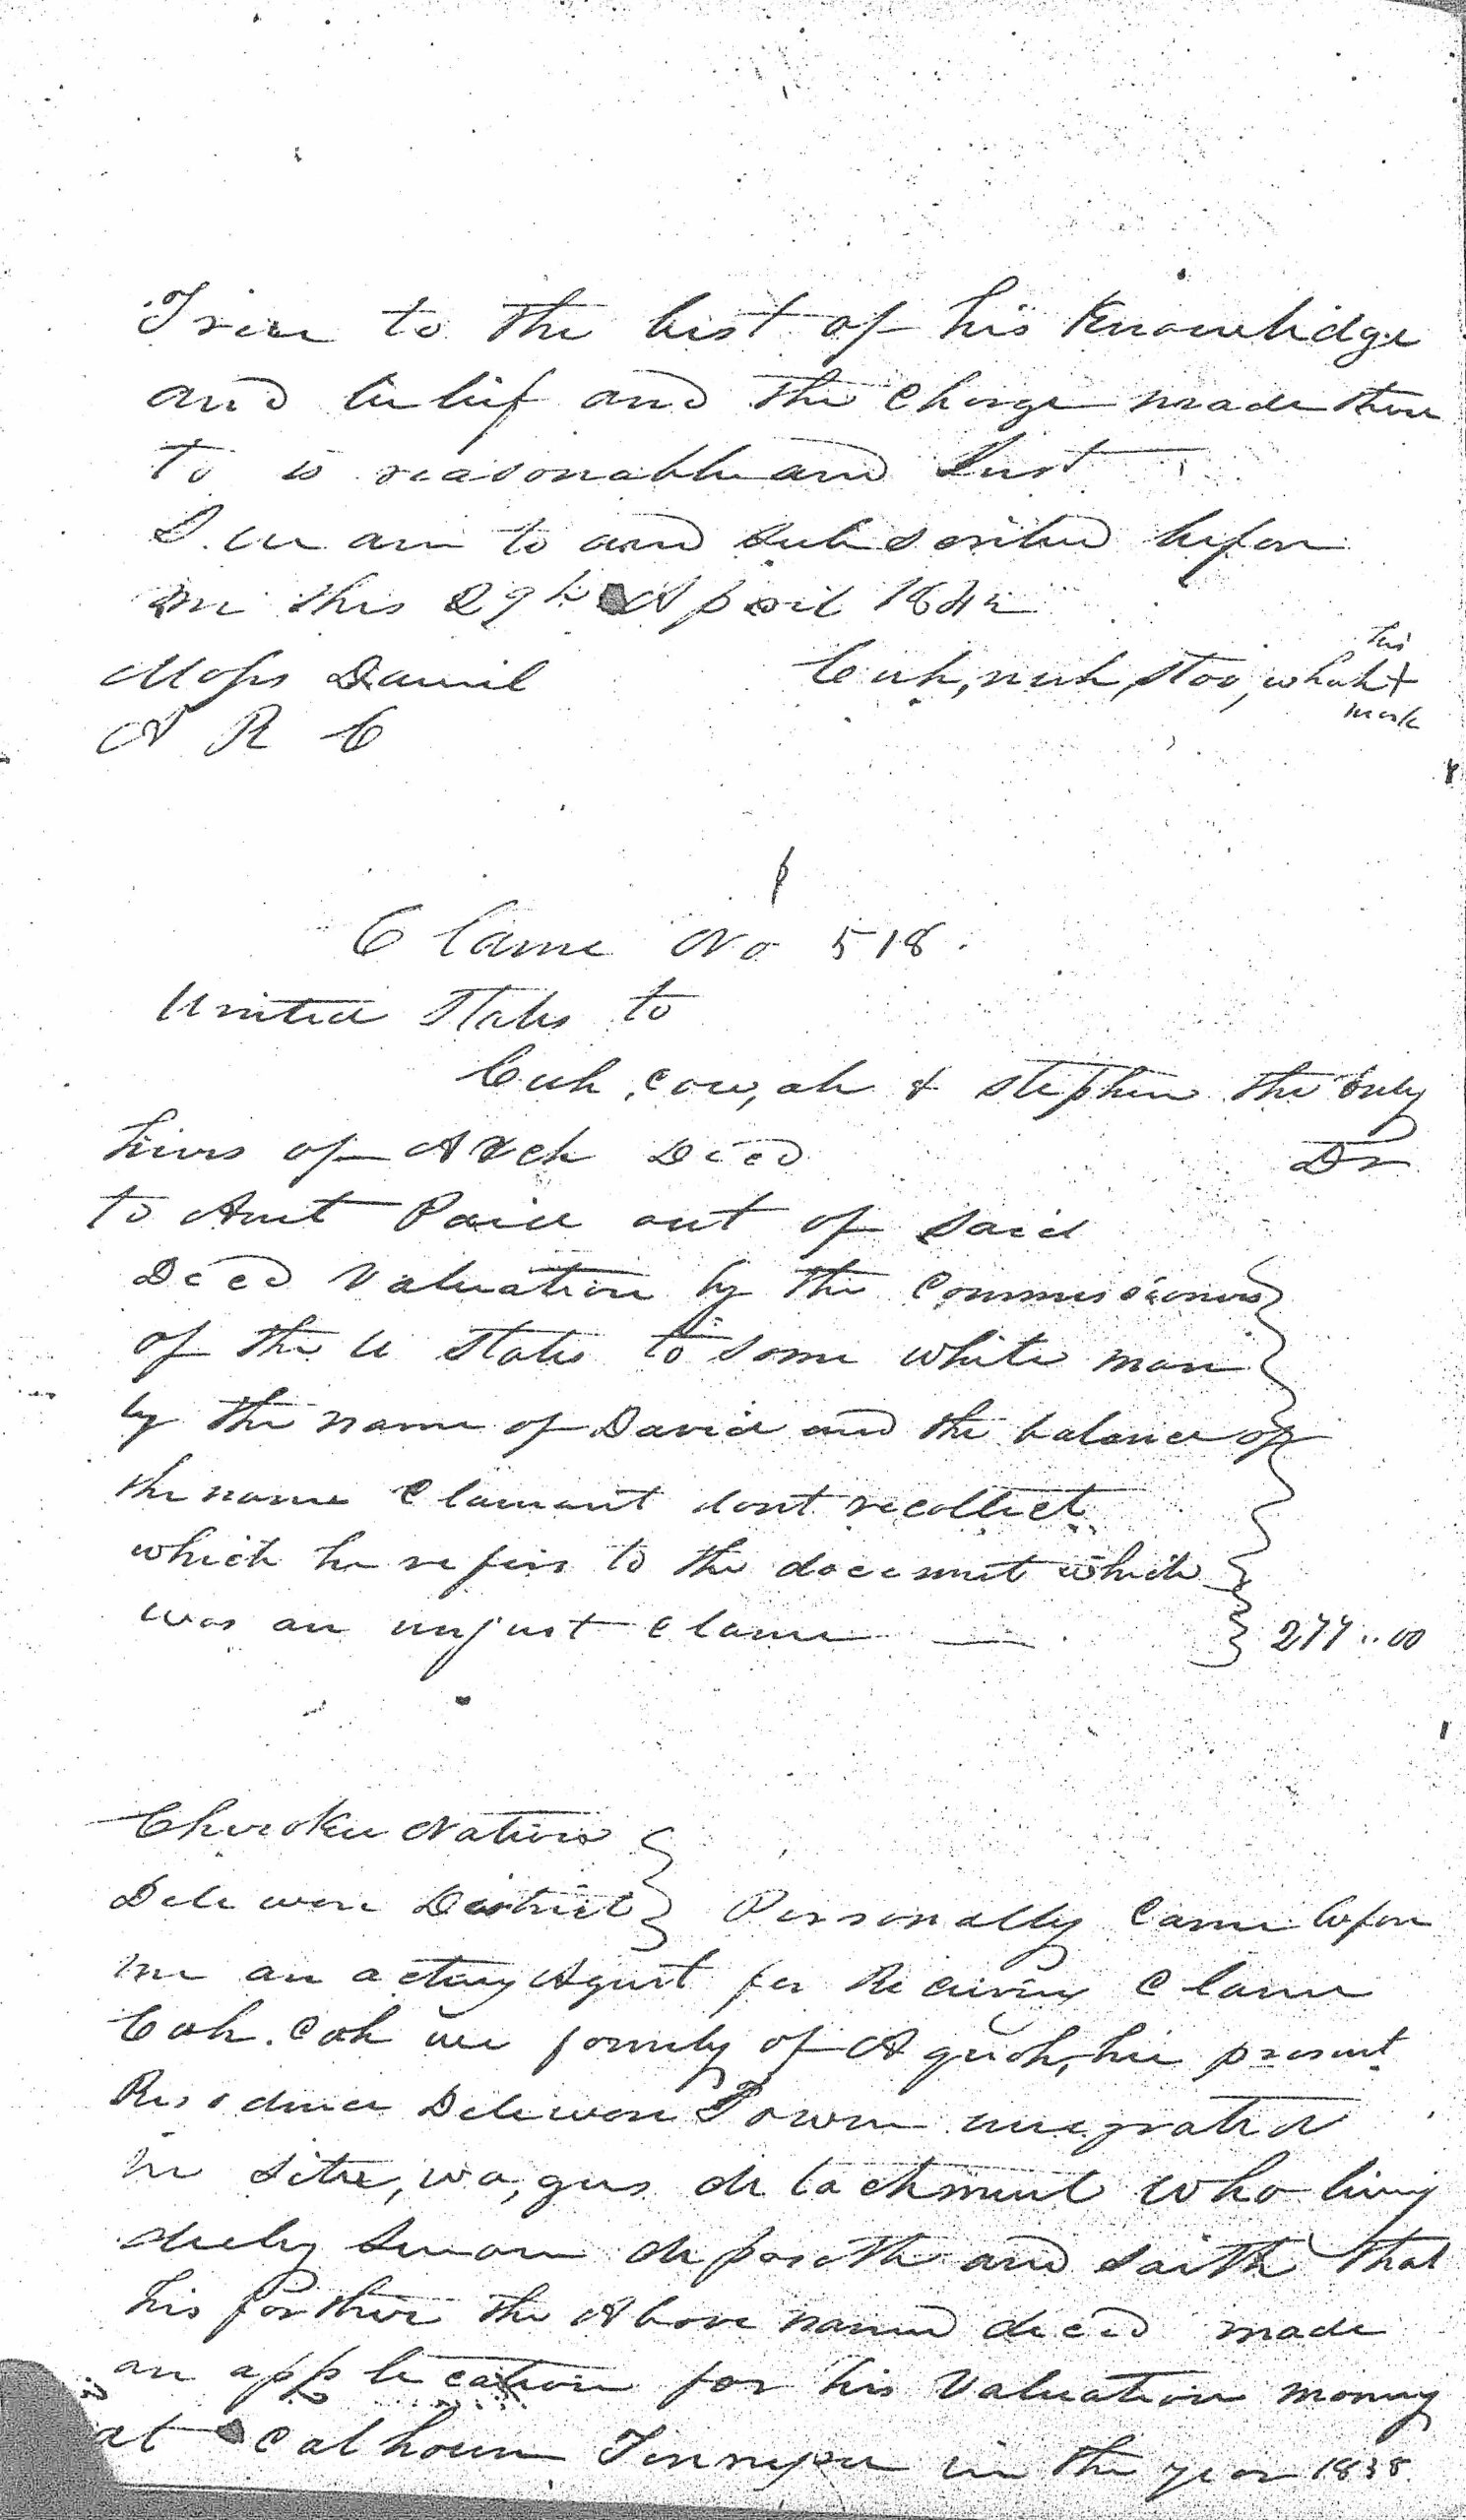 True to the best of his Knowlidge
and belief and the Charge made there
to is reasonable and Just
Swarn to and subscribed before
me this 29th April 1842
Moses Daniel Cuh,nuh,stoo,whah his + mark
A R C
Clame No 518.
United States to
Cuh,cow,ah & Stephen the only
heirs of Arch Decd Dr
to Amt Paid out of said
Decd Valuation by the Commissioners
of the U States to some white man
by the name of David and the balance of
the name Clamant dont recollect
which he refers to the document which
was an unjust clame — 277..00
Cherokee Nation
Deleware District Personally came before
me an acting Agent for Receiving Clame
Cah.cah we formly of Aquoh,hee present
Residence Deleware Town emigrated
in Situ,wa,gus detachment who being
duly Swarn deposeth and saith that
his farther the Above named decd made
an application for his Valuation money
at Calhoun Tennessee in the year 1838.